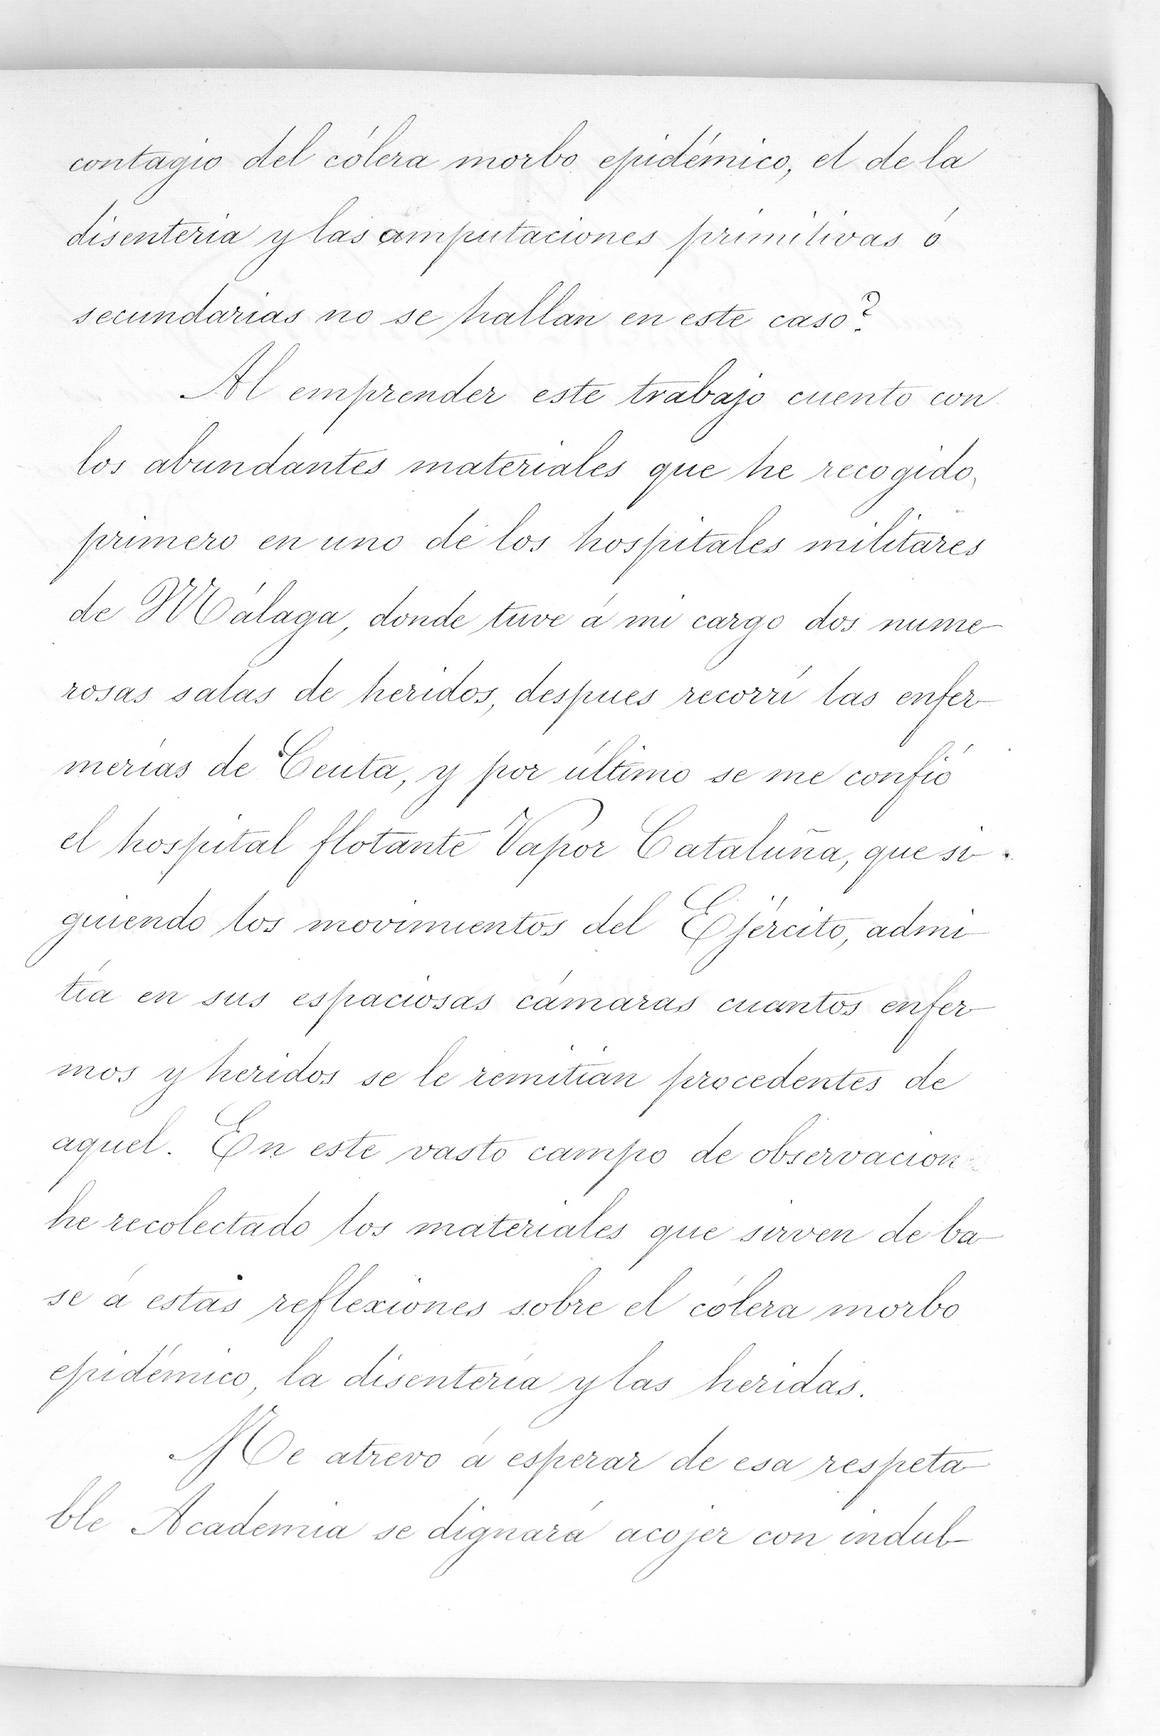 contagio del cólera morbo epidémico, el de la
disenteria y las amputaciones primitivas ó
secundarias no se hallan en este caso?
Al emprender este trabajo cuento con
los abundantes materiales que he recogido,
primero en uno de los hospitales militares
de Málaga, donde tuve á mi cargo dos nume-
rosas salas de heridos, despues recorrí las enfer-
merías de Ceuta, y por último se me confió
el hospital flotante Vapor Cataluña, que si-
guiendo los movimientos del Ejército, admi-
tía en sus espaciosas cámaras cuantos enfer-
mos y heridos se le remitian procedentes de
aquel. En este vasto campo de observacion
he recolectado los materiales que sirven de ba-
se á estas reflexiones sobre el cólera morbo
epidémico, la disentería y las heridas.
Me atrevo á esperar de esa respeta-
ble Academia se dignará acojer con indul-